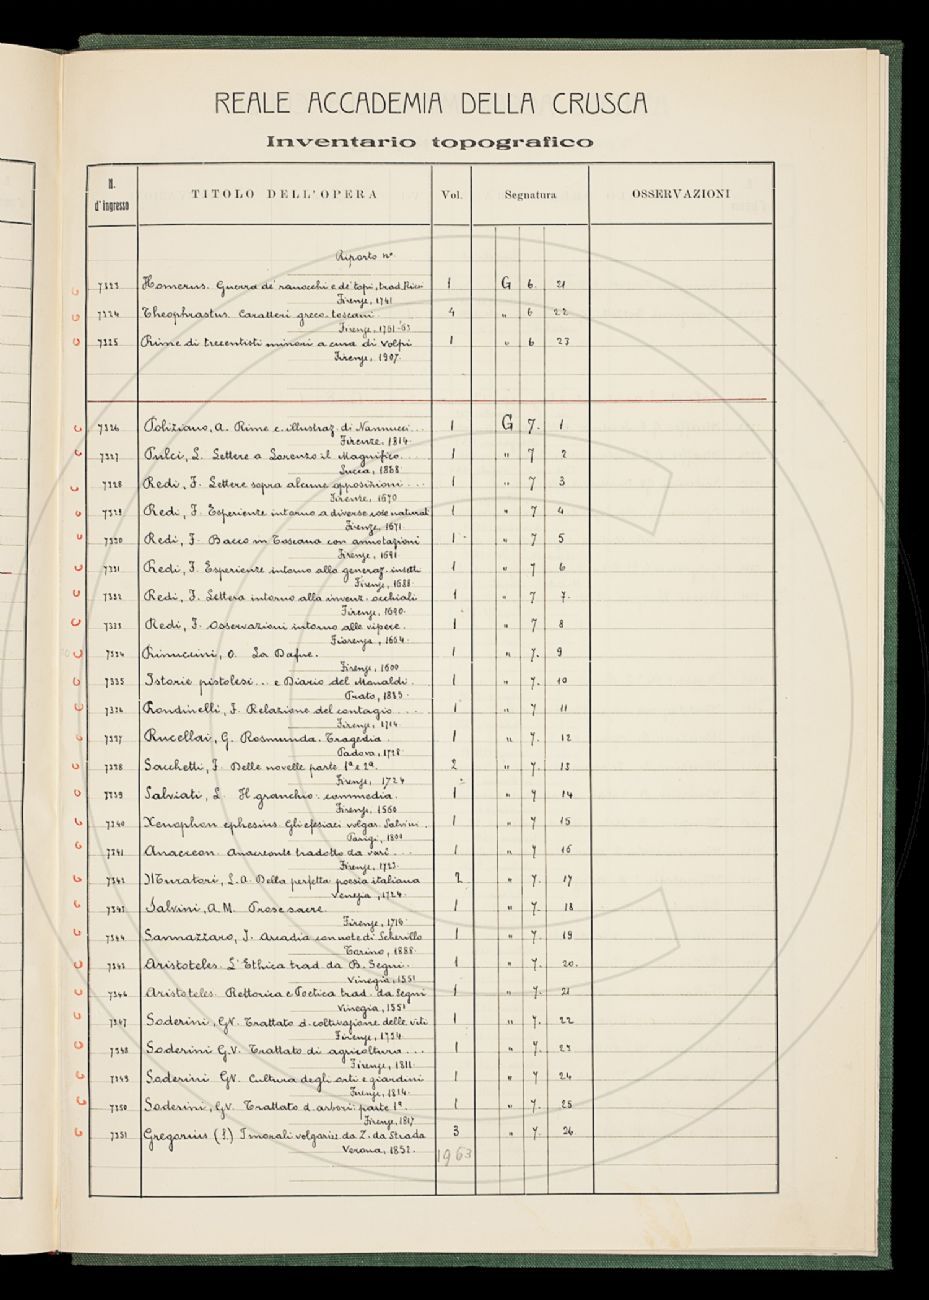 REALE ACCADEMIA DELLA CRUSCA
Inventario topografico
N. d'ingresso TITOLO DELL'OPERA Vol. Segnatura OSSERVAZIONI
Riporto nº
7323 Homerus. Guerra de' ranocchi e de' topi, trad. Ricci 1 G 6. 21
Firenze, 1741
7324 Theophrastus. Caratteri greco-toscani. 4 " 6 22
Firenze, 1761-63
7325 Rime di trecentisti minori a cura di Volpi 1 " 6 23
Firenze, 1907.
7326 Poliziano, A. Rime e illustraz. di Nannucci... 1 G 7. 1
Firenze, 1814.
7327 Pulci, L. Lettere a Lorenzo il Magnifico... 1 " 7 2
Lucca, 1868
7328 Redi, F. Lettere sopra alcune opposizioni... 1 " 7 3
Firenze, 1670
7329 Redi, F. Esperienze intorno a diverse cose naturali 1 " 7 4
Firenze, 1671
7330 Redi, F. Bacco in Toscana con annotazioni 1 " 7 5
Firenze, 1691
7331 Redi, F. Esperienze intorno alla generaz. insetti 1 " 7 6
Firenze, 1688.
7332 Redi, F. Lettera intorno alla invenz. occhiali 1 " 7 7.
Firenze, 1690.
7333 Redi, F. Osservazioni intorno alle vipere. 1 " 7 8
Fiorenza, 1664.
7334 Rinuccini, O. La Dafne. 1 " 7. 9
Firenze, 1600
7335 Istorie pistolesi... e Diario del Monaldi. 1 " 7. 10
Prato, 1835.
7336 Rondinelli, F. Relazione del contagio.... 1 " 7 11
Firenze, 1714
7337 Rucellai, G. Rosmunda. Tragedia. 1 " 7. 12
Padova, 1728.
7338 Sacchetti, F. Delle novelle parte 1ª e 2ª. 2 " 7. 13
Firenze, 1724
7339 Salviati, L. Il granchio. commedia. 1 " 7 14
Firenze, 1566
7340 Xenophon ephesius. Gli efesiaci volgar. Salvini. 1 " 7 15
Parigi, 1800
7341 Anacreon. Anacreonte tradotto da vari... 1 " 7 16
Firenze, 1723.
7342 Muratori, L.A. Della perfetta poesia italiana 2 " 7. 17
Venezia, 1724.
7343 Salvini, A.M. Prose sacre. 1 " 7. 18
Firenze, 1716.
7344 Sannazzaro, J. Arcadia con note di Scherillo 1 " 7. 19
Torino, 1888.
7345 Aristoteles. L'Ethica trad. da B. Segni. 1 " 7. 20.
Vinegia, 1551
7346 Aristoteles. Rettorica e Poetica trad. da Segni 1 " 7. 21
Vinegia, 1551
7347 Soderini, GV. Trattato d. coltivazione delle viti 1 " 7. 22
Firenze, 1734
7348 Soderini G.V. Trattato di agricoltura... 1 " 7. 23
Firenze, 1811.
7349 Soderini GV. Cultura degli orti e giardini 1 " 7 24
Firenze, 1814.
7350 Soderini, GV. Trattato d. arbori. parte 1ª. 1 " 7. 25
Firenze, 1817
7351 Gregorius (S.) I morali volgariz. da Z. da Strada 3 " 7. 26
Verona, 1852.
1963